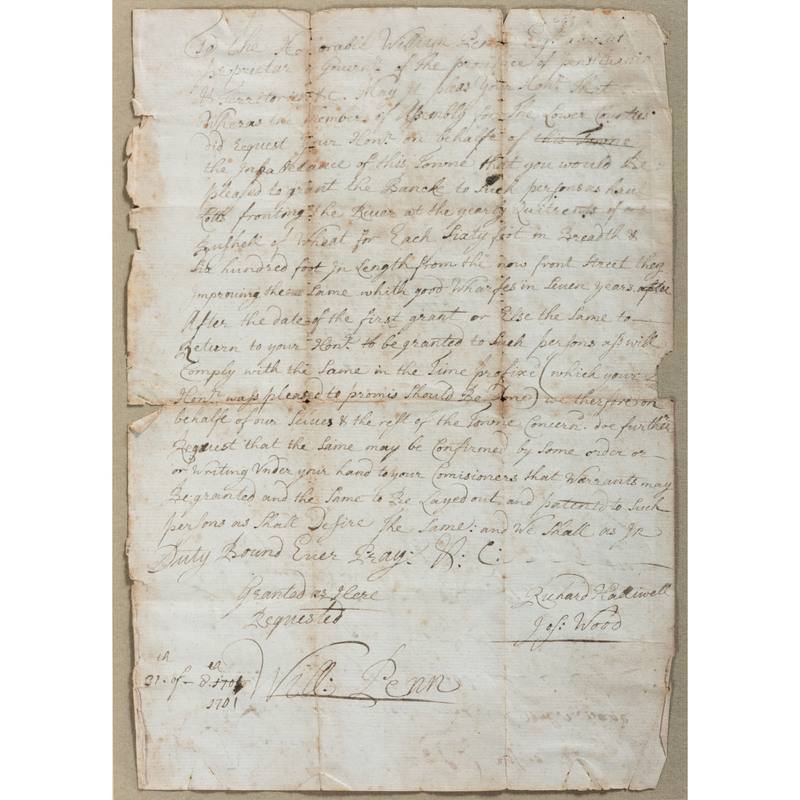 To the Honorable William Penn Esqr
proprietar & Governr of the province of pensilvania
& Territories &c. May it pleas Your Honr That
Wheras the Members of Assembly for The Lower Counties
did Request Your Honr on behalfe of this Towne
the Inhabitance of this Towne that you would Be
pleased to grant the Banck to Such persons as have
Lots fronting The River at the yearly Quitrents of one
Bushell of Wheat for Each Sixty foot in Breadth &
Six hundred foot In Length from the now front Street they
improving the Same whith good Wharfes in Seven years after
After the date of the first grant or Else the Same to
Return to your Honr to be granted to Such persons ass will
Comply with the Same in the Time prefixd (which your
Honr wass pleased to promis Should Be Done) we therfore on
behalfe of our Selves & the rest of the Towne Concernd doe further
Request that the Same may be Confirmed by Some order or
or Writing Under your hand to your Comisioners that Warrants may
Be granted and the Same to Be Layed out and pattentd to Such
persons as Shall Desire the Same: and We Shall as In
Duty Bound Ever Pray: &: C:
Granted as Here
Requested
Richard Halliwell
Jos: Wood
31th of 8th 1701
1701
Will: Penn